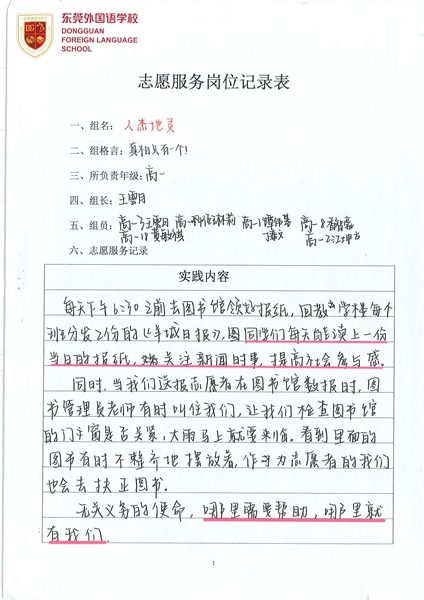 东莞外国语学校
DONGGUAN
FOREIGN LANGUAGE
SCHOOL
志愿服务岗位记录表
一、组名：人杰地灵
二、组格言：真相只有一个！
三、所负责年级：高一
四、组长：王雪月
五、组员：高一3王雪月 高一 高一1 高一8
高一18黄 高一2江
六、志愿服务记录
实践内容
每天下午6:30之前去图书馆领好报纸，回教学楼每个
班分发2份的《羊城日报》，图同学们每天能读上一份
当日的报纸，关注新闻时事，提高社会参与感。
同时，当我们送报志愿者在图书馆数报时，图
书管理员老师有时叫住我们，让我们检查图书馆
的门窗是否关紧，大雨马上就要来临。看到里面的
图书有时不整齐地摆放着，作为志愿者的我们
也会去扶正图书。
无关义务的使命，哪里需要帮助，哪里就
有我们．
1